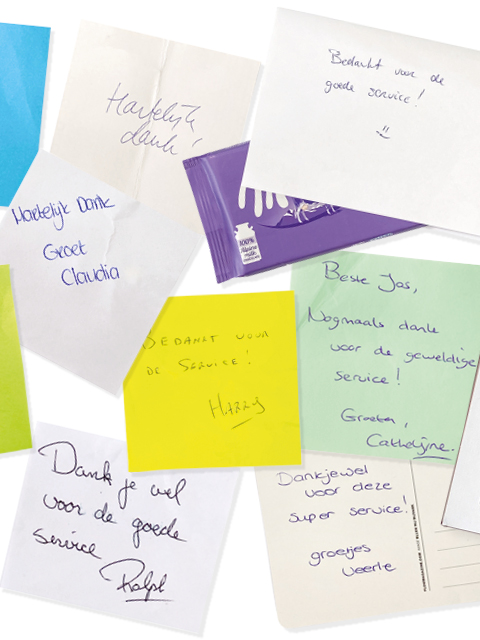 Hartelijk
dank!
Bedankt voor de
goede service!
Hartelijk Dank
Groet
Claudia
100%
Alpine
milk
Beste Jos,
Nogmaals dank
voor de geweldige
service!
Groeten,
Cathelijne.
BEDANKT VOOR
DE SERVICE!
HARRY
Dank je wel
voor de goede
service
Ralph
Dankjewel
voor deze
super service!
groetjes
Veerle